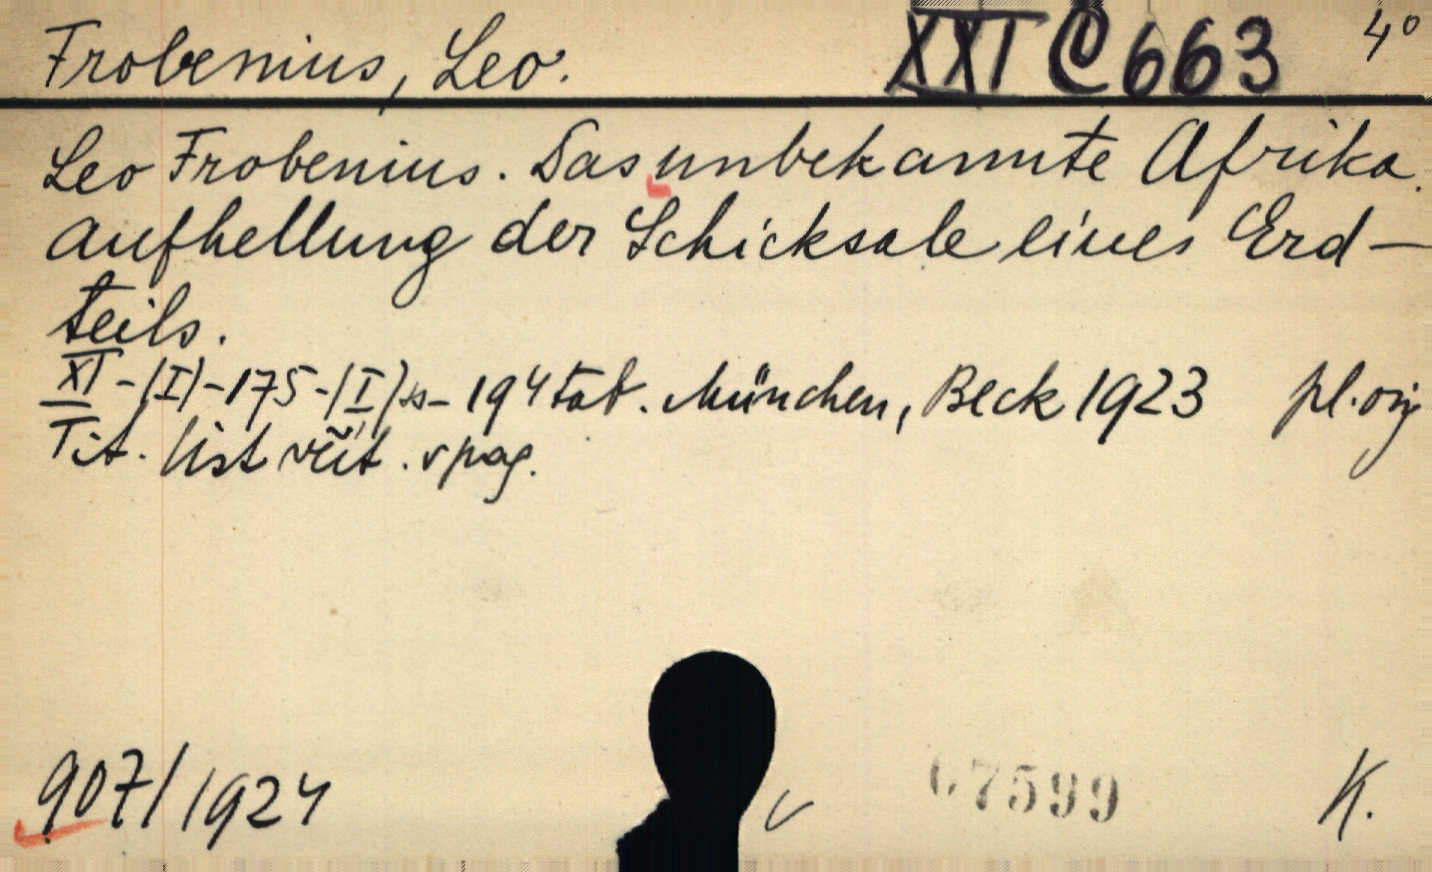 Frobenius, Leo. XXI C 663 4°
Leo Frobenius. Das unbekannte Afrika.
Aufhellung der Schicksale eines Erd-
teils.
XI-(I)-175-(I)ss-194 tab. München, Beck 1923 pl. orig
Tit. list včít. v pag.
907/1924 67599 K.